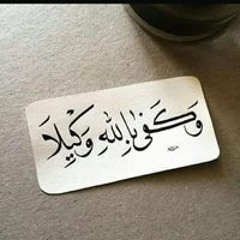 وَكَفىٰ بِاللّٰهِ وَكِيلاً